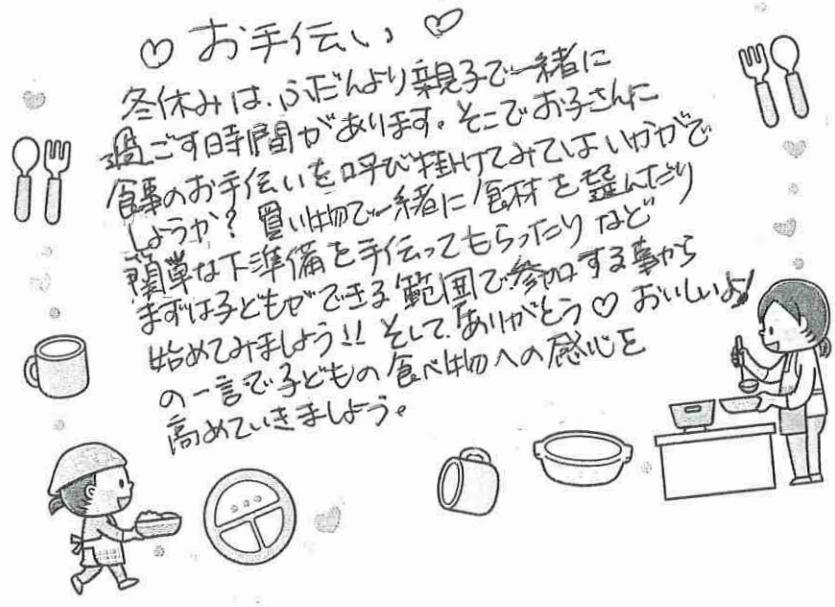 ♡ お手伝い ♡
冬休みは、ふだんより親子で一緒に
過ごす時間があります。そこでお子さんに
食事のお手伝いを呼び掛けてみてはいかがで
しょうか？ 買い物で一緒に食材を選んだり
簡単な下準備を手伝ってもらったりなど
まずは子どもができる範囲で参加する事から
始めてみましょう!! そして、ありがとう♡ おいしいよ♪
の一言で子どもの食べ物への感心を
高めていきましょう。